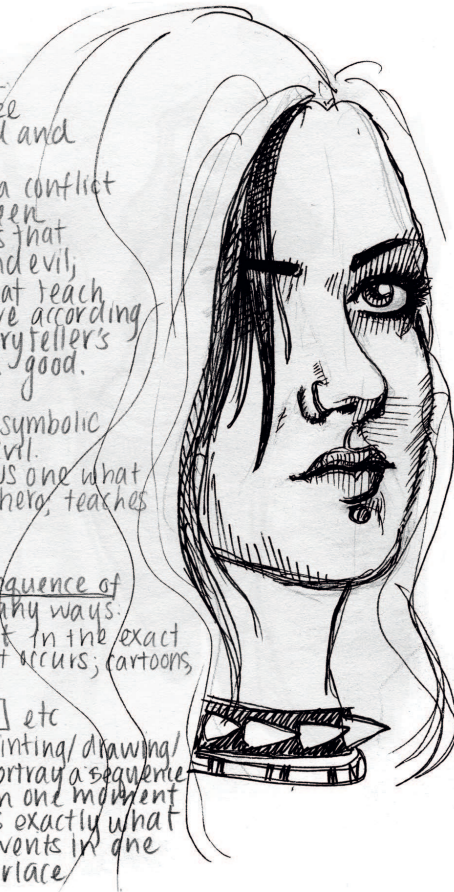 d and
a conflict
een
s that
nd evil;
at teach
ve according
ryteller's
good.
symbolic
vil.
us one what
hero, teaches
equence of
any ways:
t in the exact
t occurs; cartoons,
etc
inting/drawing/
ortray a sequence
n one moment
s exactly what
vents in one
erlace